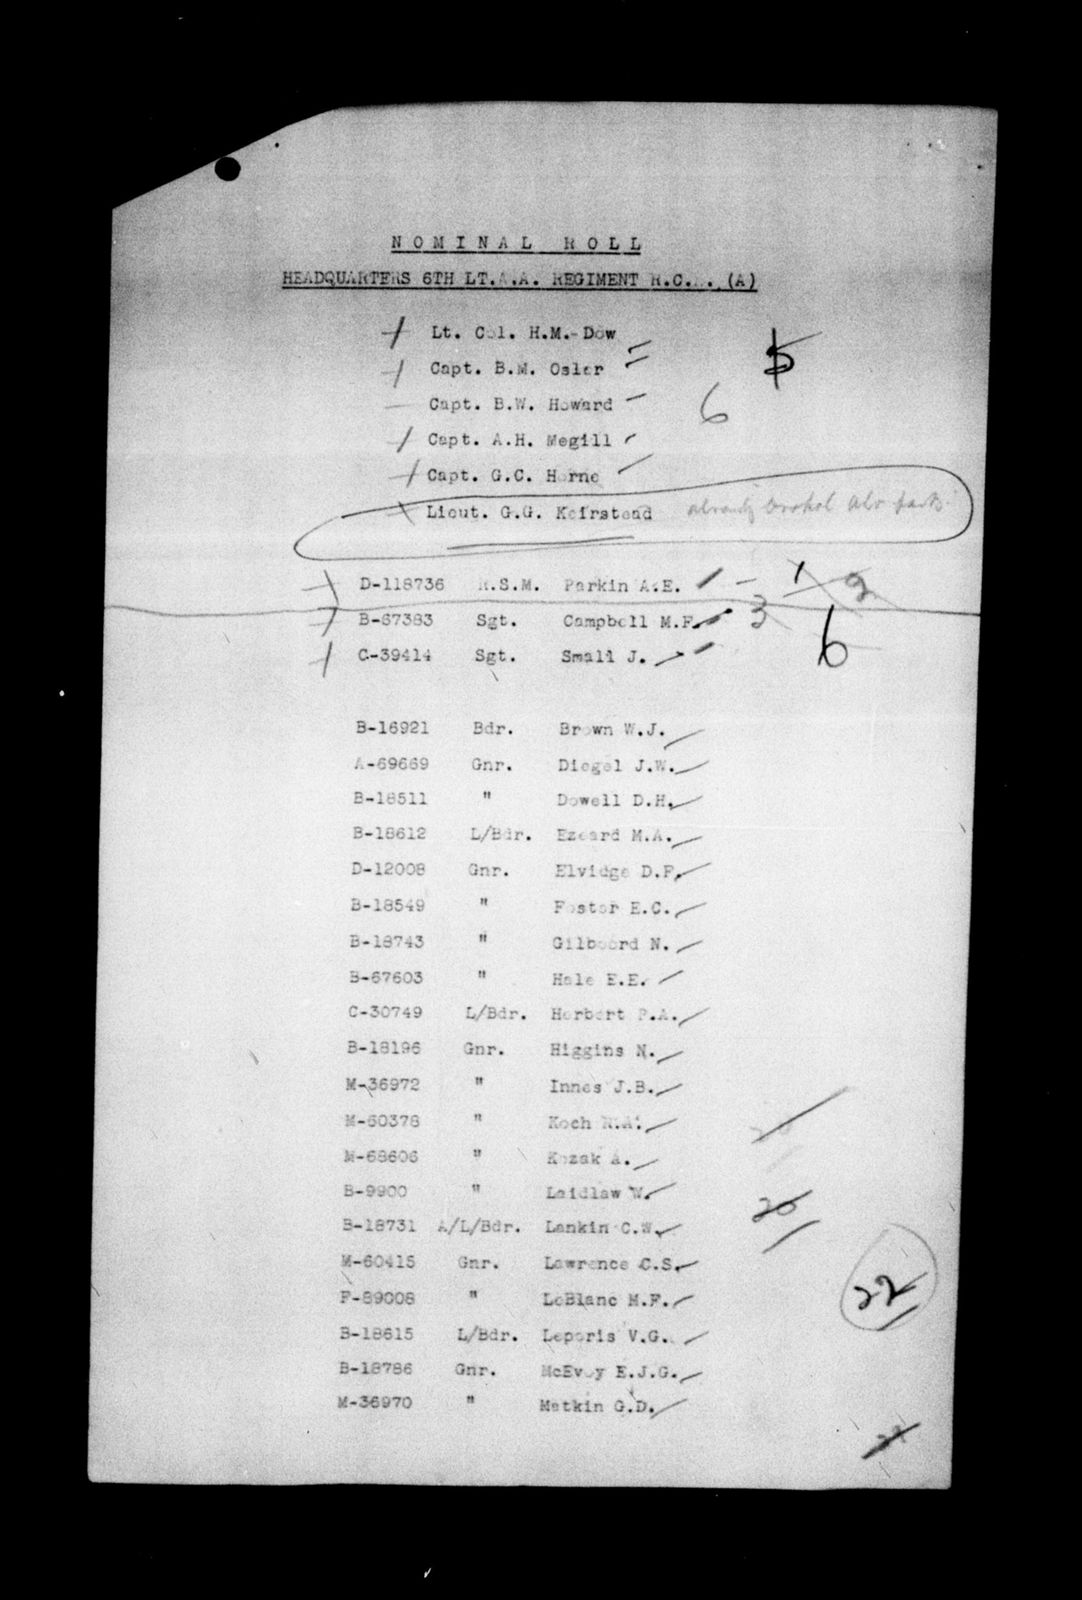 NOMINAL ROLL
HEADQUARTERS 6TH LT.A.A. REGIMENT R.C.A. (A)
Lt. Col. H.M. Dow
Capt. B.M. Osler
5
Capt. B.W. Howard
6
Capt. A.H. Megill
Capt. G.C. Horne
Lieut. G.G. Keirstead already
D-118736 R.S.M. Parkin A.E. 1 2
B-67383 Sgt. Campbell M.F. 3
C-39414 Sgt. Small J. 6
B-16921 Bdr. Brown W.J.
A-69669 Gnr. Diegel J.W.
B-18511 " Dowell D.H.
B-18612 L/Bdr. Ezeard M.A.
D-12008 Gnr. Elvidge D.F.
B-18549 " Foster E.C.
B-18743 " Gilboord N.
B-67603 " Hale E.E.
C-30749 L/Bdr. Herbert P.A.
B-18196 Gnr. Higgins N.
M-36972 " Innes J.B.
M-60378 " Koch
M-68606 " Kozak A.
B-9900 " Laidlaw W.
20
B-18731 A/L/Bdr. Lankin C.W.
M-60415 Gnr. Lawrence C.S.
22
F-89008 " LeBlanc M.F.
B-18615 L/Bdr. Leporis V.G.
B-18786 Gnr. McEvoy E.J.G.
M-36970 " Matkin G.D.